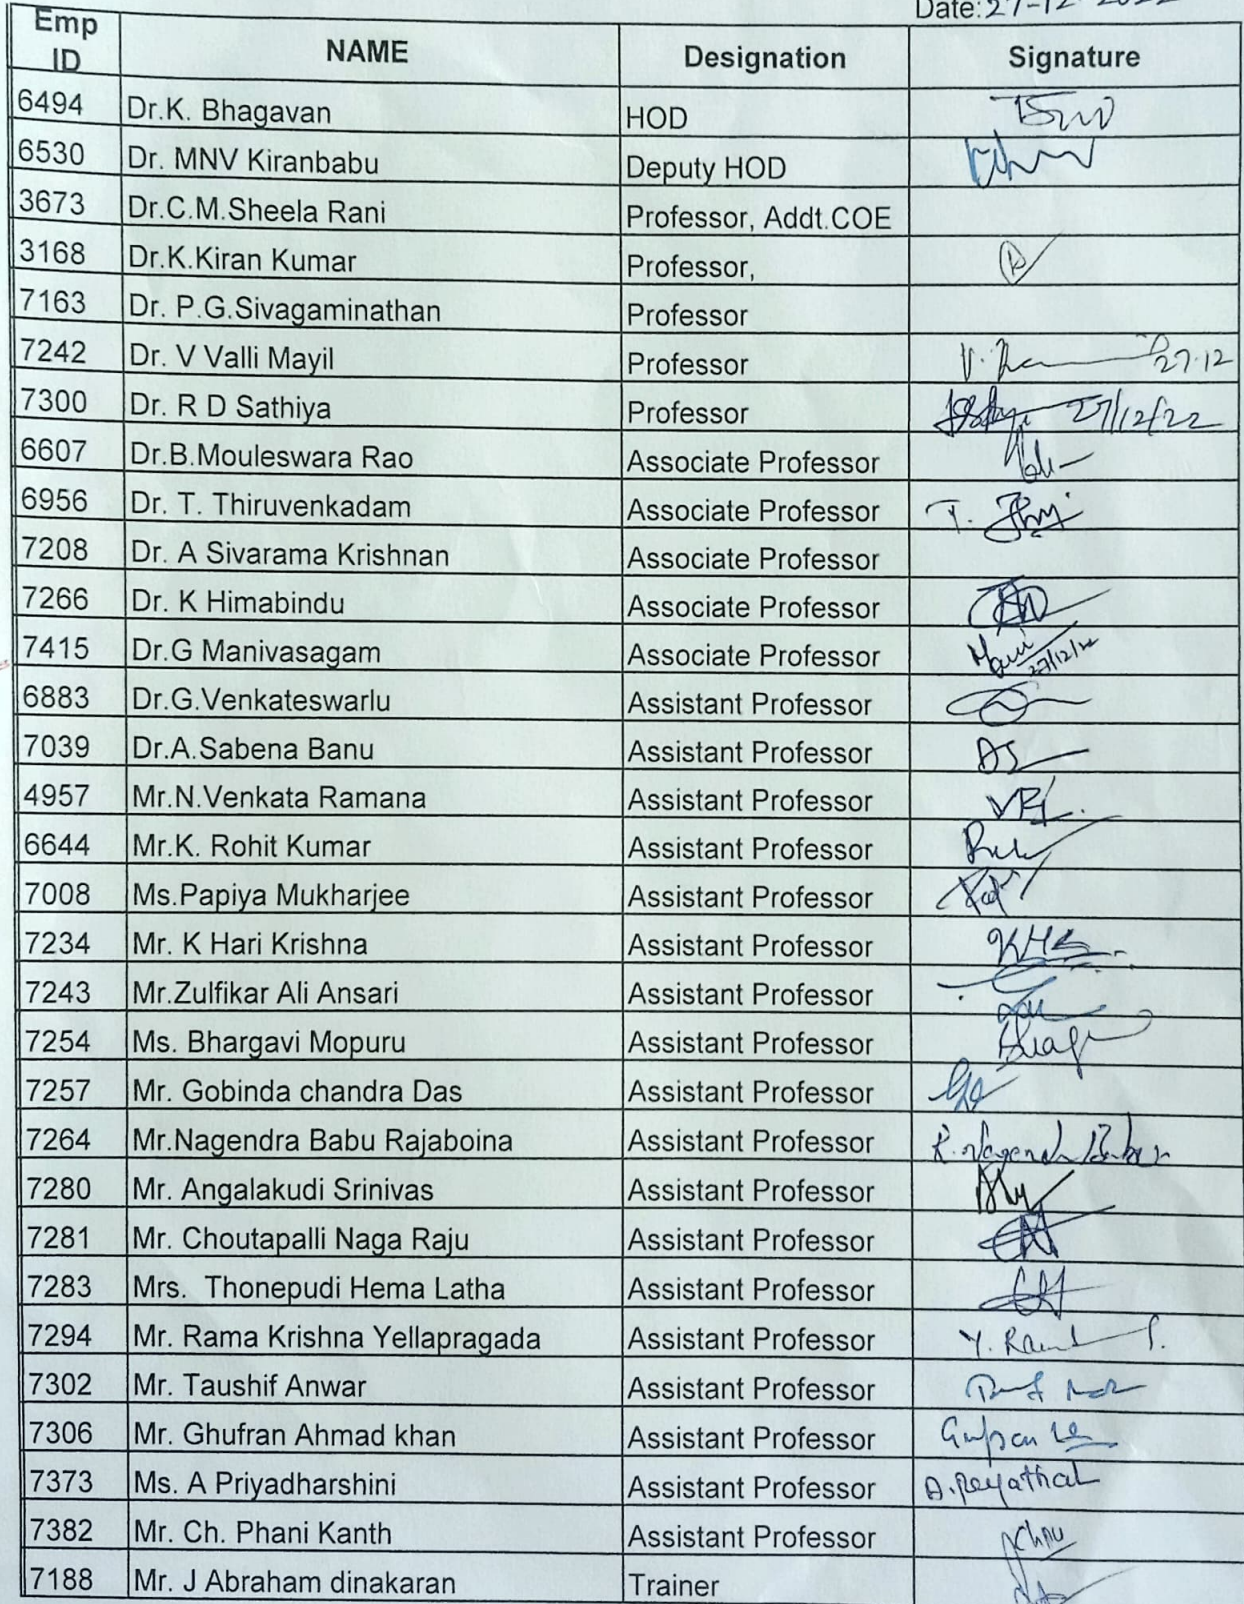 Date: 27-12-2022
Emp ID NAME Designation Signature
6494 Dr.K. Bhagavan HOD
6530 Dr. MNV Kiranbabu Deputy HOD
3673 Dr.C.M.Sheela Rani Professor, Addt.COE
3168 Dr.K.Kiran Kumar Professor,
7163 Dr. P.G.Sivagaminathan Professor
7242 Dr. V Valli Mayil Professor 27.12
7300 Dr. R D Sathiya Professor 27/12/22
6607 Dr.B.Mouleswara Rao Associate Professor
6956 Dr. T. Thiruvenkadam Associate Professor T.
7208 Dr. A Sivarama Krishnan Associate Professor
7266 Dr. K Himabindu Associate Professor
7415 Dr.G Manivasagam Associate Professor Mani 27/12/22
6883 Dr.G.Venkateswarlu Assistant Professor
7039 Dr.A.Sabena Banu Assistant Professor AS
4957 Mr.N.Venkata Ramana Assistant Professor
6644 Mr.K. Rohit Kumar Assistant Professor
7008 Ms.Papiya Mukharjee Assistant Professor
7234 Mr. K Hari Krishna Assistant Professor KHK
7243 Mr.Zulfikar Ali Ansari Assistant Professor
7254 Ms. Bhargavi Mopuru Assistant Professor
7257 Mr. Gobinda chandra Das Assistant Professor
7264 Mr.Nagendra Babu Rajaboina Assistant Professor R. Nagendra Babu
7280 Mr. Angalakudi Srinivas Assistant Professor
7281 Mr. Choutapalli Naga Raju Assistant Professor
7283 Mrs. Thonepudi Hema Latha Assistant Professor
7294 Mr. Rama Krishna Yellapragada Assistant Professor Y. Ram
7302 Mr. Taushif Anwar Assistant Professor
7306 Mr. Ghufran Ahmad khan Assistant Professor
7373 Ms. A Priyadharshini Assistant Professor
7382 Mr. Ch. Phani Kanth Assistant Professor
7188 Mr. J Abraham dinakaran Trainer